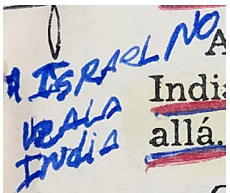 A ISRAEL NO
VEA LA
INDIA
A
India
allá.